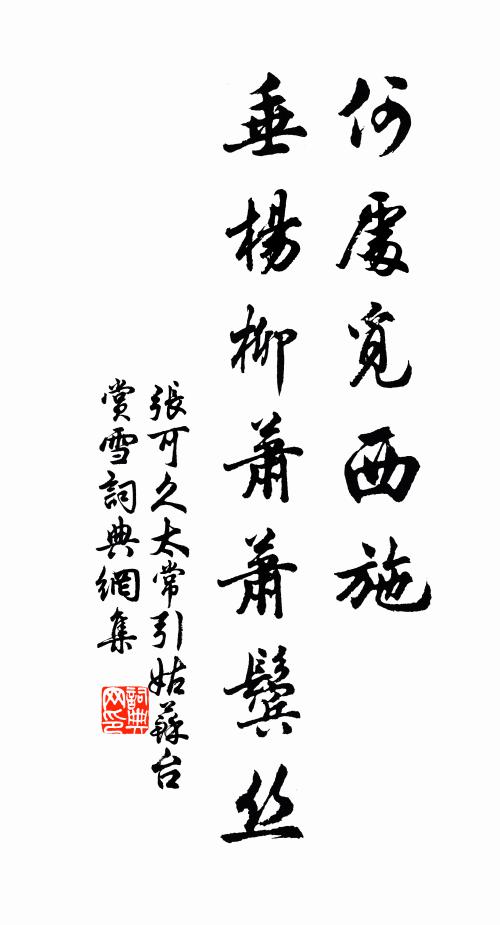 何處覓西施
垂楊柳蕭蕭鬢丝
張可久太常引姑蘇台
賞雪詞典網集
詞典
网印